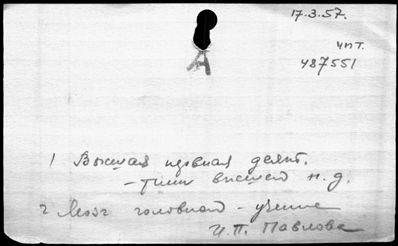 17.3.57.
чит.
487551
А
1 Высшая нервная деят.
- типы высшей н.д.
2 Мозг головной - учение
И.П. Павлова